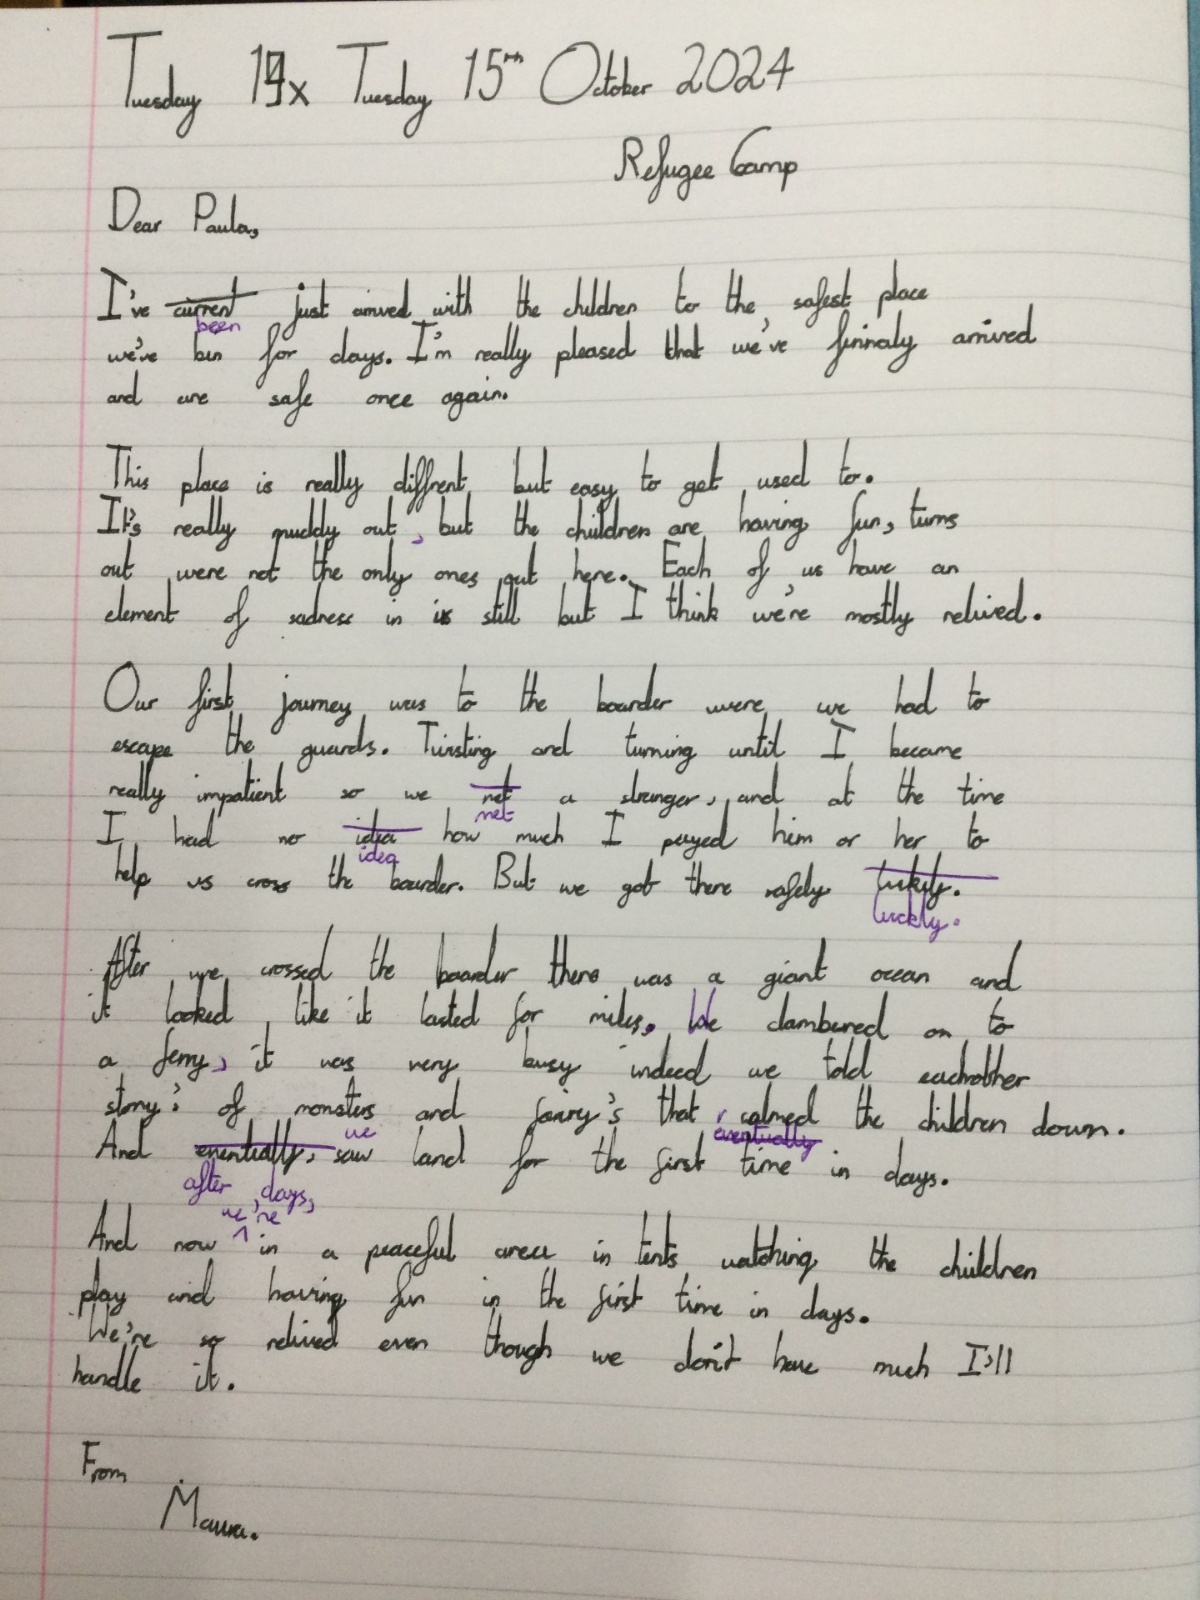 Tuesday 19x Tuesday 15th October 2024
Refugee Camp
Dear Paula,
I've current just arrived with the children to the safest place
been
we've bin for days. I'm really pleased that we've finnaly arrived
and are safe once again.
This place is really diffrent but easy to get used to.
It's really muddy out, but the children are having fun, turns
out were not the only ones out here. Each of us have an
element of sadness in is still but I think we're mostly relived.
Our first journey was to the boarder were we had to
escape the guards. Twisting and turning until I became
really impatient so we net a stranger, and at the time
met
I had no idia how much I payed him or her to
idea
help us cross the boarder. But we got there safely lukily.
luckly.
After we crossed the boarder there was a giant ocean and
it looked like it lasted for miles. We clambered on to
a ferry, it was very busy indeed we told eachother
story's of monsters and fairy's that calmed the children down.
we eventually
And eventually, saw land for the first time in days.
after days,
we're
And now ^ in a peaceful area in tents watching the children
play and having fun in the first time in days.
We're so relived even though we don't have much I'll
handle it.
From
Maura.